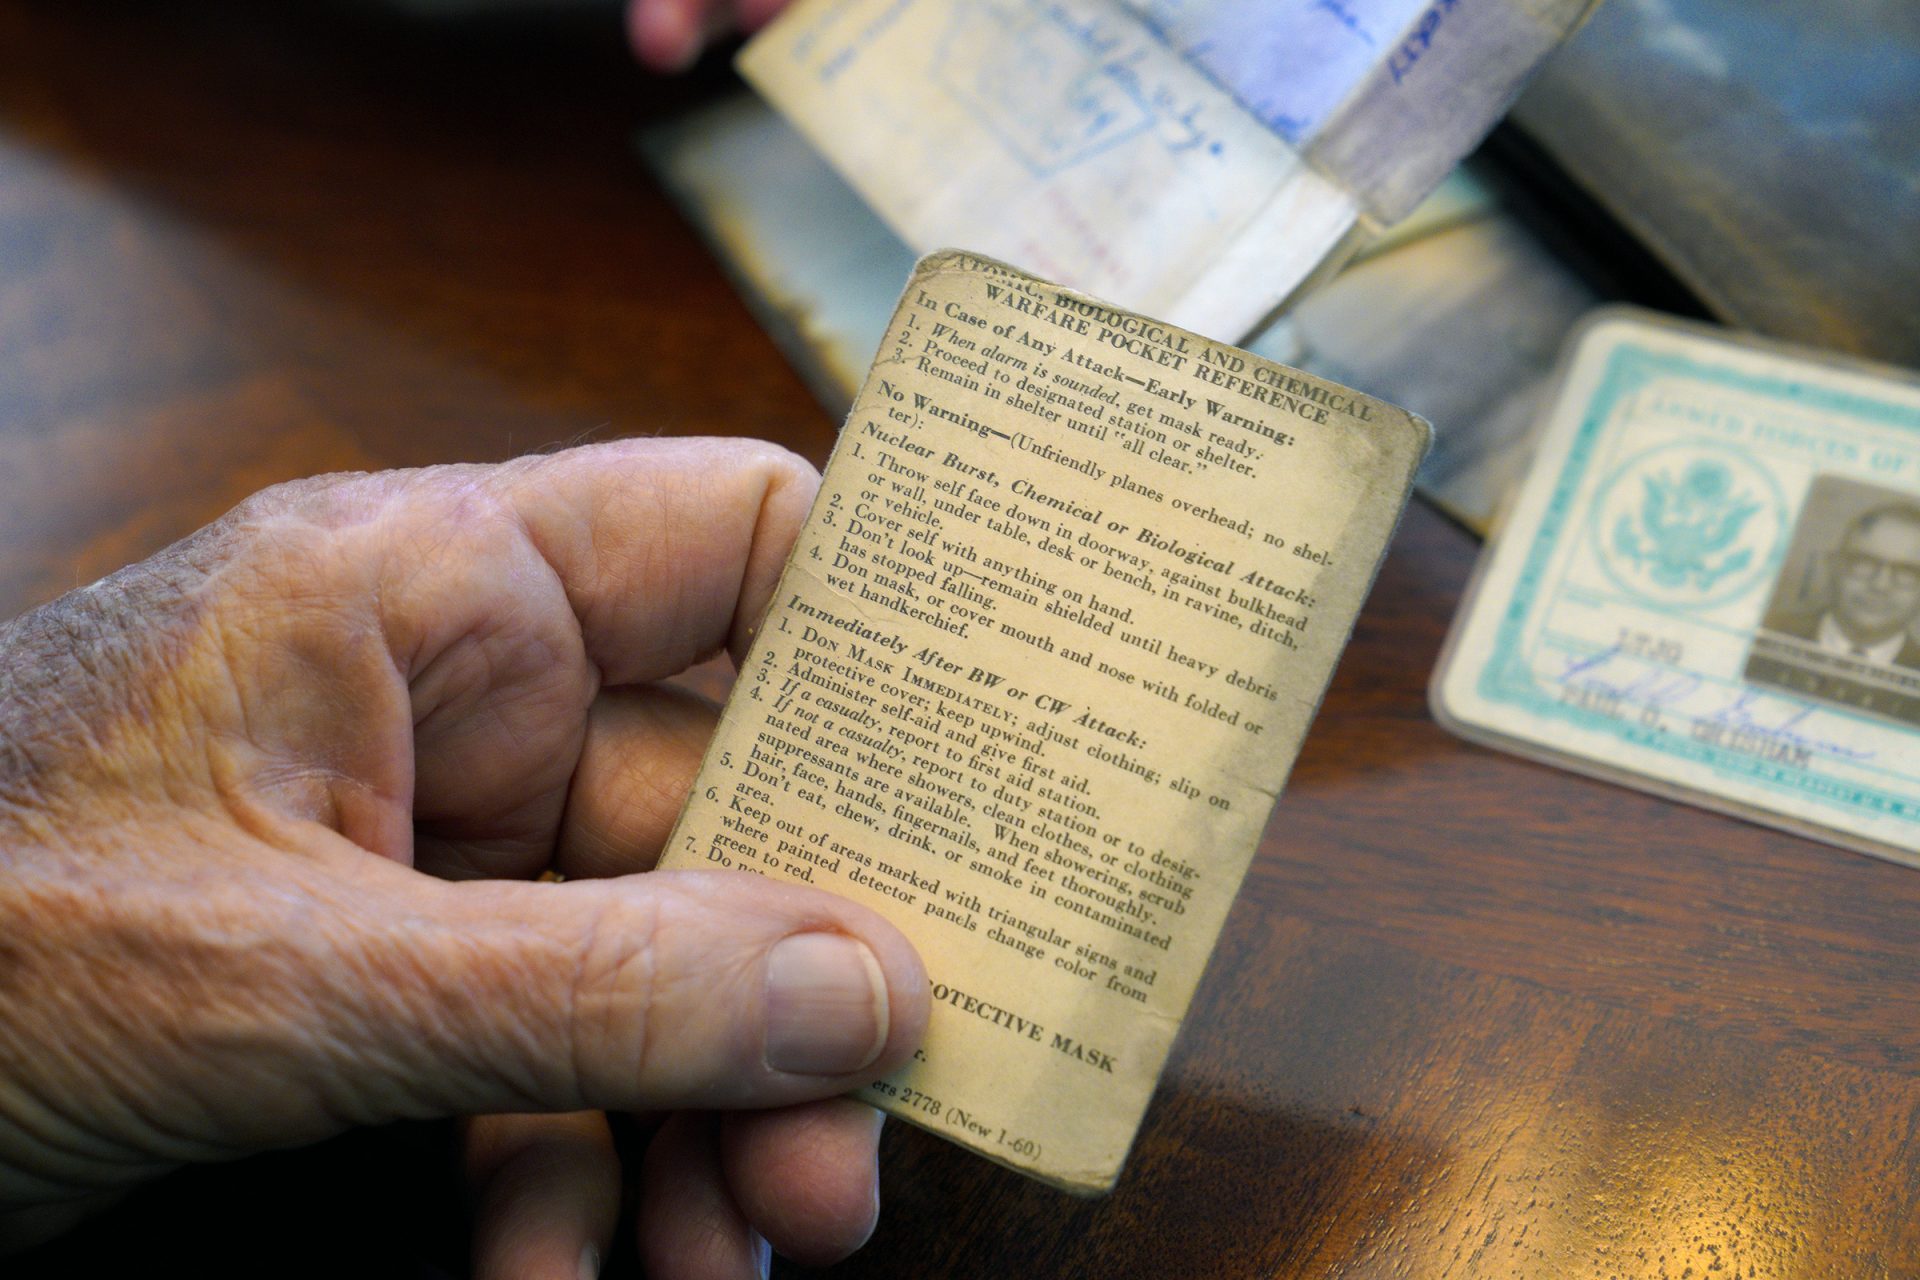 ATOMIC, BIOLOGICAL AND CHEMICAL
WARFARE POCKET REFERENCE
In Case of Any Attack—Early Warning:
1. When alarm is sounded, get mask ready.
2. Proceed to designated station or shelter.
3. Remain in shelter until "all clear."
No Warning—(Unfriendly planes overhead; no shel-
ter):
Nuclear Burst, Chemical or Biological Attack:
1. Throw self face down in doorway, against bulkhead
or wall, under table, desk or bench, in ravine, ditch,
or vehicle.
2. Cover self with anything on hand.
3. Don't look up—remain shielded until heavy debris
has stopped falling.
4. Don mask, or cover mouth and nose with folded or
wet handkerchief.
Immediately After BW or CW Attack:
1. DON MASK IMMEDIATELY; adjust clothing; slip on
protective cover; keep upwind.
2. Administer self-aid and give first aid.
3. If a casualty, report to first aid station.
4. If not a casualty, report to duty station or to desig-
nated area where showers, clean clothes, or clothing
suppressants are available. When showering, scrub
hair, face, hands, fingernails, and feet thoroughly.
5. Don't eat, chew, drink, or smoke in contaminated
area.
6. Keep out of areas marked with triangular signs and
where painted detector panels change color from
green to red.
7. Do
not
OTECTIVE MASK
r.
ers 2778 (New 1-60)
ARMED FORCES OF
LTJG
PAUL O. GRISHAM